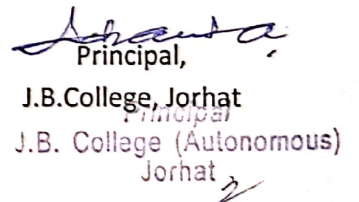 Principal,
J.B.College, Jorhat
Principal
J.B. College (Autonomous)
Jorhat